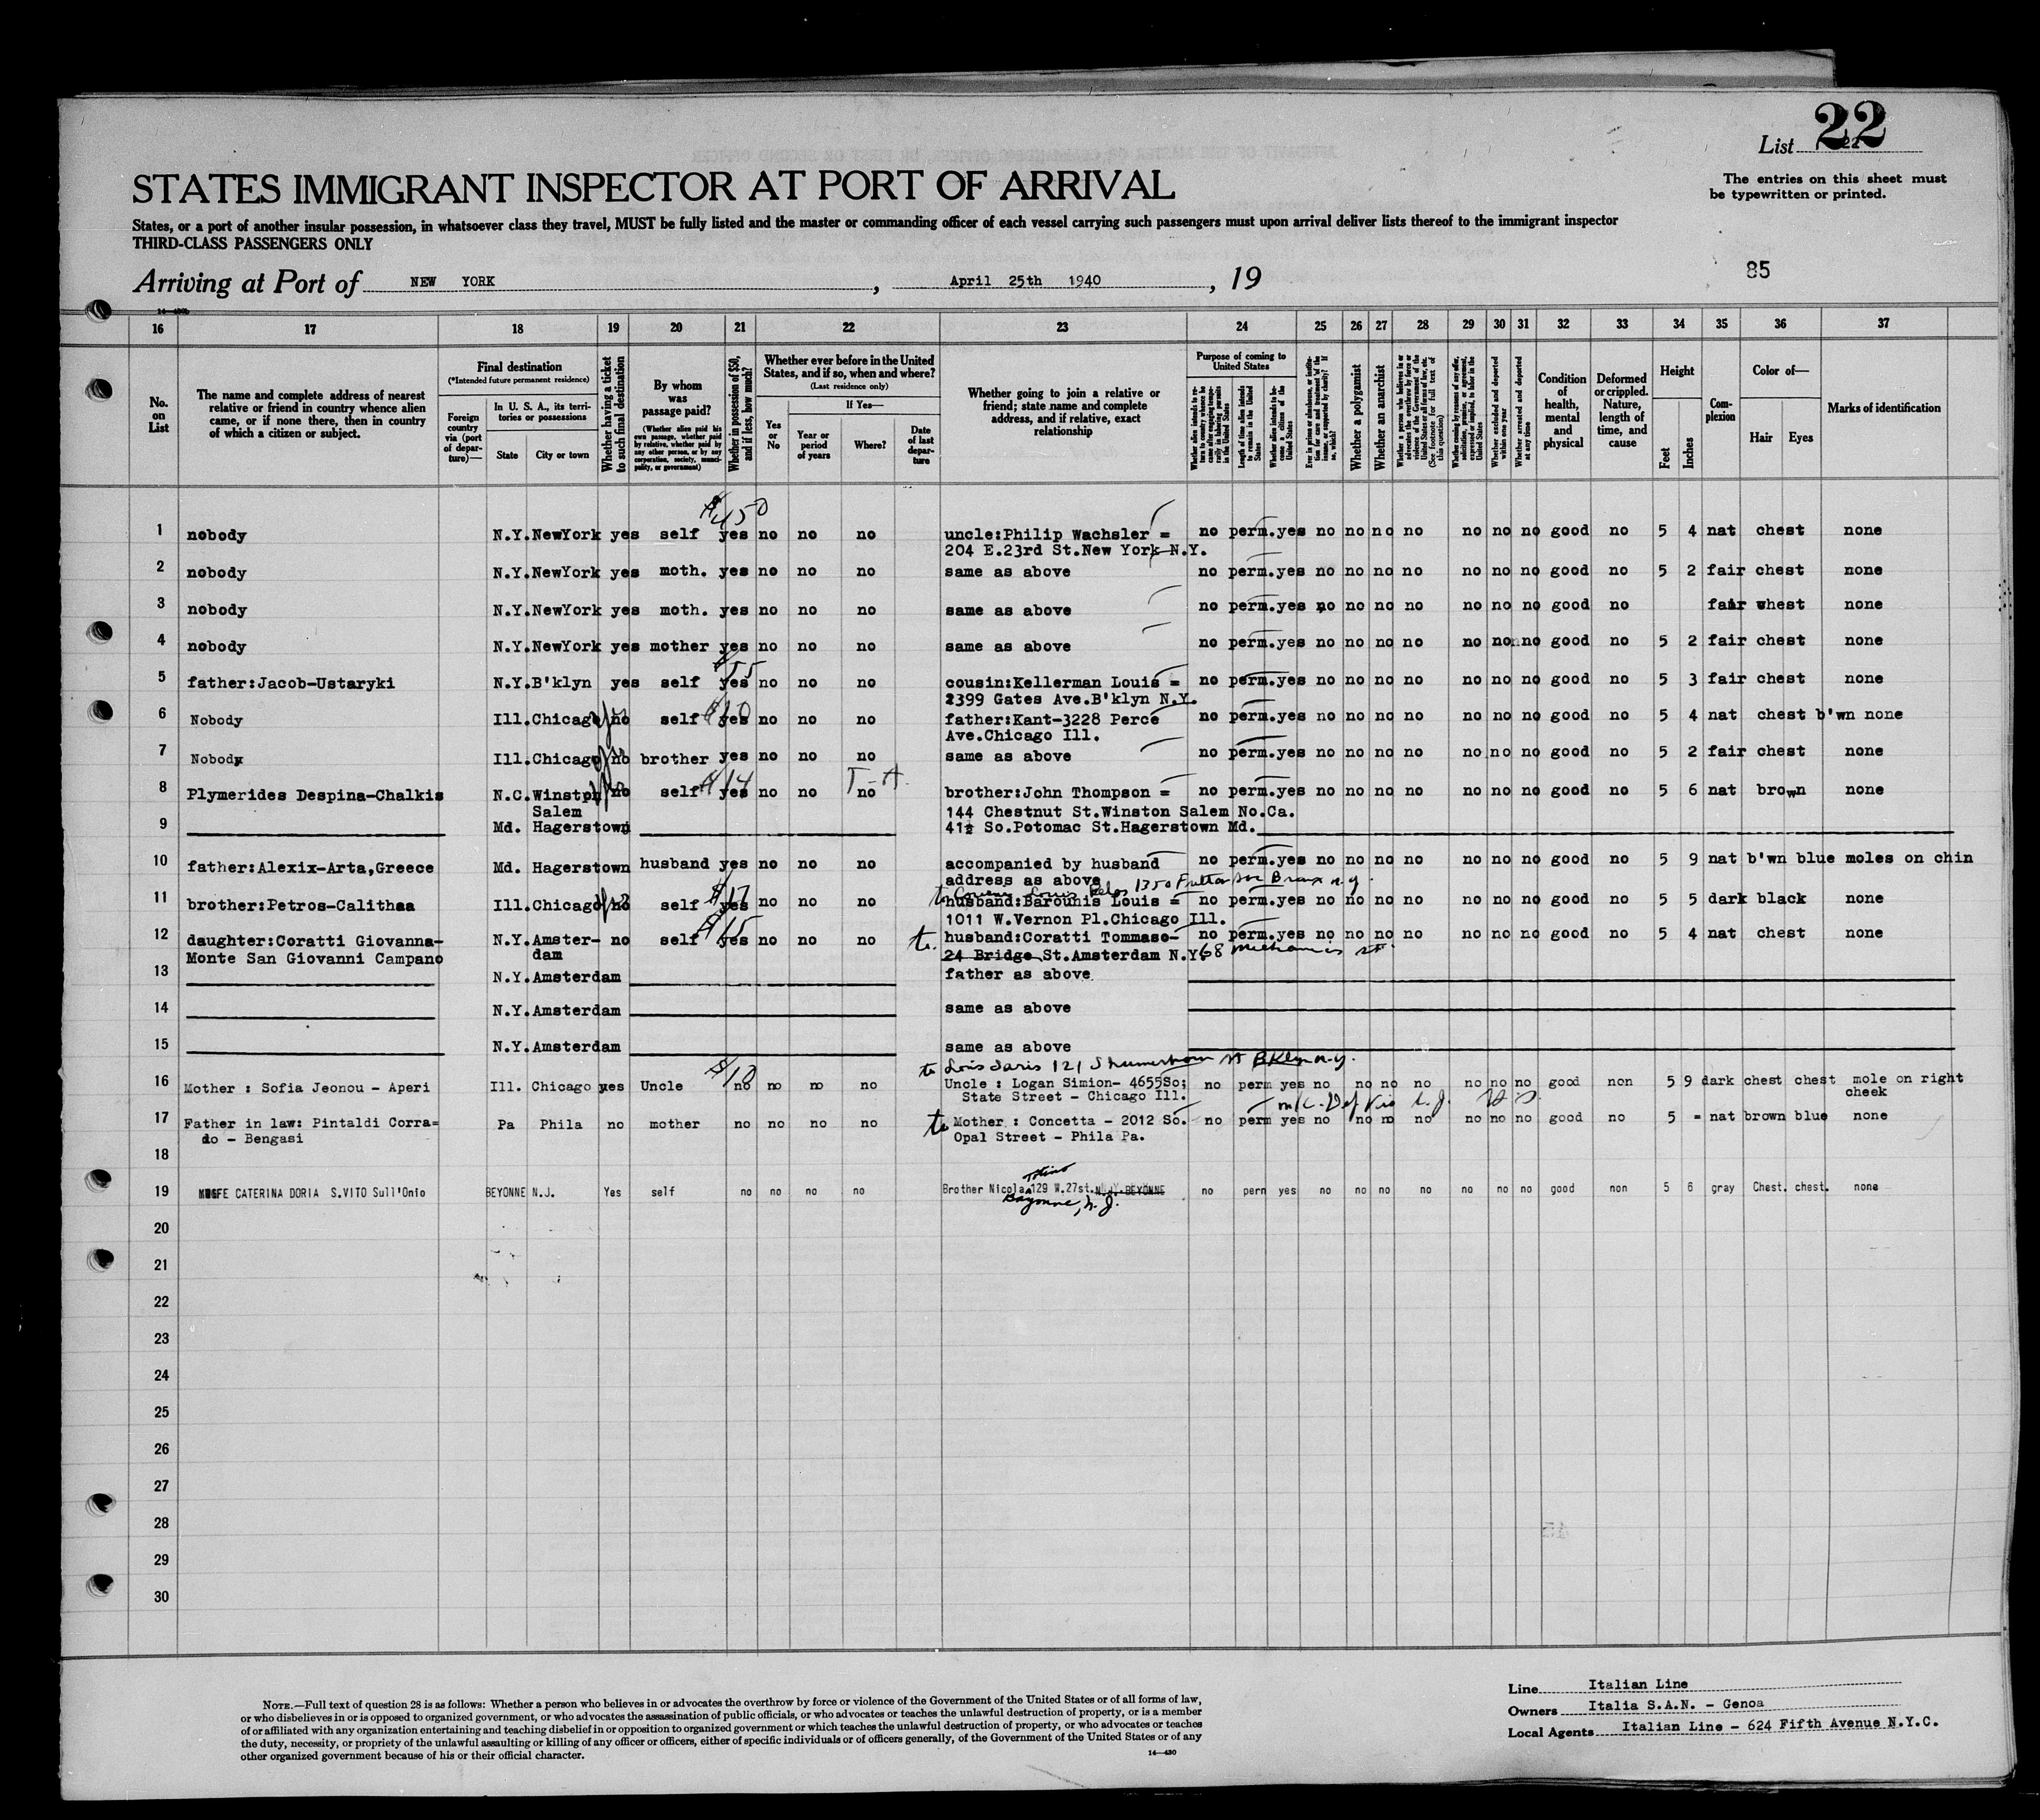 List 22
22
The entries on this sheet must
be typewritten or printed.
STATES IMMIGRANT INSPECTOR AT PORT OF ARRIVAL
States, or a port of another insular possession, in whatsoever class they travel, MUST be fully listed and the master or commanding officer of each vessel carrying such passengers must upon arrival deliver lists thereof to the immigrant inspector
THIRD-CLASS PASSENGERS ONLY
85
Arriving at Port of NEW YORK, April 25th 1940, 19
16 17 18 19 20 21 22 23 24 25 26 27 28 29 30 31 32 33 34 35 36 37
No. on List
The name and complete address of nearest relative or friend in country whence alien came, or if none there, then in country of which a citizen or subject.
Final destination
(*Intended future permanent residence)
Foreign country via (port of departure)—
In U. S. A., its territories or possessions
State
City or town
Whether having a ticket to such final destination
By whom was passage paid?
(Whether alien paid his own passage, whether paid by relative, whether paid by any other person, or by any corporation, society, municipality, or government)
Whether in possession of $50, and if less, how much?
Whether ever before in the United States, and if so, when and where?
(Last residence only)
Yes or No
If Yes—
Year or period of years
Where?
Date of last departure
Whether going to join a relative or friend; state name and complete address, and if relative, exact relationship
Purpose of coming to United States
Length of time alien intends to remain in the United States
Whether alien intends to become a citizen of the United States
Whether a polygamist
Whether an anarchist
Whether excluded and deported within one year
Whether arrested and deported at any time
Condition of health, mental and physical
Deformed or crippled. Nature, length of time, and cause
Height
Feet
Inches
Complexion
Color of—
Hair
Eyes
Marks of identification
$450
1 nobody N.Y. NewYork yes self yes no no no uncle:Philip Wachsler = no perm. yes no no no no no no no good no 5 4 nat chest none
204 E.23rd St.New York N.Y.
2 nobody N.Y. NewYork yes moth. yes no no no same as above no perm. yes no no no no no no no good no 5 2 fair chest none
3 nobody N.Y. NewYork yes moth. yes no no no same as above no perm. yes no no no no no no no good no fair chest none
4 nobody N.Y. NewYork yes mother yes no no no same as above no perm. yes no no no no no no no good no 5 2 fair chest none
$55
5 father:Jacob-Ustaryki N.Y. B'klyn yes self yes no no no cousin:Kellerman Louis = no perm. yes no no no no no no no good no 5 3 fair chest none
2399 Gates Ave.B'klyn N.Y.
6 Nobody Ill. Chicago no self yes no no no father:Kant-3228 Perce no perm. yes no no no no no no no good no 5 4 nat chest b'wn none
Ave.Chicago Ill.
7 Nobody Ill. Chicago no brother yes no no no same as above no perm. yes no no no no no no no good no 5 2 fair chest none
$14 T-A
8 Plymerides Despina-Chalkis N.C. Winston no self yes no no no brother:John Thompson = no perm. yes no no no no no no no good no 5 6 nat brown none
Salem 144 Chestnut St.Winston Salem No.Ca.
9 Md. Hagerstown 41½ So.Potomac St.Hagerstown Md.
10 father:Alexix-Arta,Greece Md. Hagerstown husband yes no no no accompanied by husband no perm. yes no no no no no no no good no 5 9 nat b'wn blue moles on chin
address as above
$17 to Cousin Louis Belos 1350 Fulton Ave Bronx N.Y.
11 brother:Petros-Calithaa Ill. Chicago no self yes no no no husband:Barounis Louis = no perm. yes no no no no no no no good no 5 5 dark black none
1011 W.Vernon Pl.Chicago Ill.
$15
12 daughter:Coratti Giovanna- N.Y. Amster- no self yes no no no to. husband:Coratti Tommaso- no perm. yes no no no no no no no good no 5 4 nat chest none
Monte San Giovanni Campano dam 24 Bridge St.Amsterdam N.Y. 68 Mechanics st
13 N.Y. Amsterdam father as above
14 N.Y. Amsterdam same as above
15 N.Y. Amsterdam same as above
$10 to Louis Saris 121 St BKlyn N.Y.
16 Mother : Sofia Jeonou - Aperi Ill. Chicago yes Uncle no no no no Uncle : Logan Simion- 4655So; no perm yes no no no no no no no good non 5 9 dark chest chest mole on right
State Street - Chicago Ill. cheek
17 Father in law: Pintaldi Corra= Pa Phila no mother no no no no to Mother : Concetta - 2012 So. no perm yes no no no no no no no good no 5 = nat brown blue none
do - Bengasi Opal Street - Phila Pa.
18
19 WIFE CATERINA DORIA S.VITO Sull'Onio BEYONNE N.J. Yes self no no no no Brother Nicola 129 W.27st. N.J.Y. BEYONNE no perm yes no no no no no no no good non 5 6 gray Chest. chest. none
Bayonne, N.J.
20
21
22
23
24
25
26
27
28
29
30
NOTE.—Full text of question 28 is as follows: Whether a person who believes in or advocates the overthrow by force or violence of the Government of the United States or of all forms of law,
or who disbelieves in or is opposed to organized government, or who advocates the assassination of public officials, or who advocates or teaches the unlawful destruction of property, or is a member
of or affiliated with any organization entertaining and teaching disbelief in or opposition to organized government or which teaches the unlawful destruction of property, or who advocates or teaches
the duty, necessity, or propriety of the unlawful assaulting or killing of any officer or officers, either of specific individuals or of officers generally, of the Government of the United States or of any
other organized government because of his or their official character.
14—430
Line Italian Line
Owners Italia S.A.N. - Genoa
Local Agents Italian Line - 624 Fifth Avenue N.Y.C.